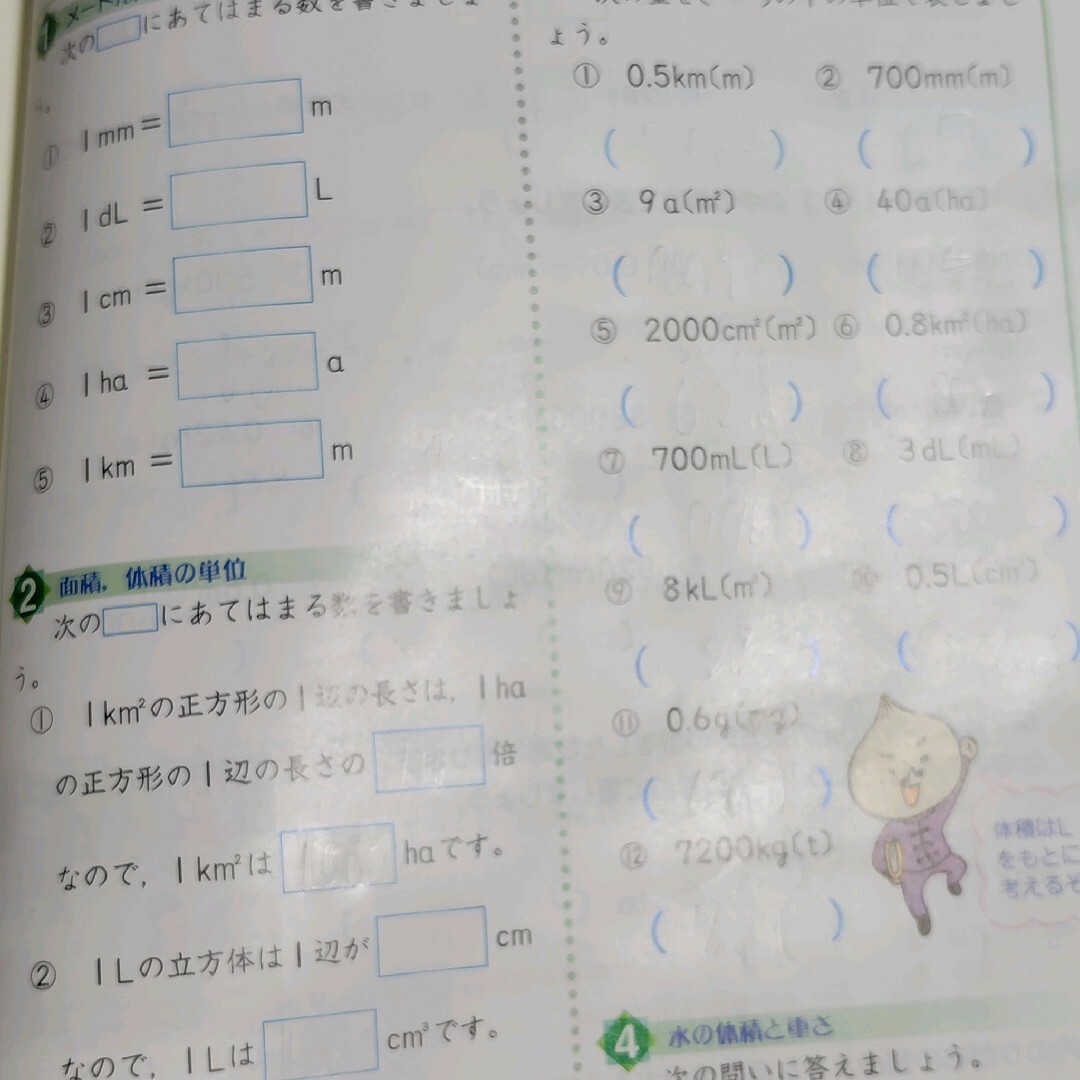 1 メートル
次の□にあてはまる数を書きましょ
う。
① 1mm＝□m
② 1dL＝□L
③ 1cm＝□m
④ 1ha＝□a
⑤ 1km＝□m
2 面積，体積の単位
次の□にあてはまる数を書きましょ
う。
① 1km²の正方形の1辺の長さは，1ha
の正方形の1辺の長さの□倍
なので，1km²は□haです。
② 1Lの立方体は1辺が□cm
なので，1Lは□cm³です。
ょう。
① 0.5km(m) ② 700mm(m)
( ) ( )
③ 9a(m²) ④ 40a(ha)
( ) ( )
⑤ 2000cm²(m²) ⑥ 0.8km²(ha)
( ) ( )
⑦ 700mL(L) ⑧ 3dL(mL)
( ) ( )
⑨ 8kL(m³) ⑩ 0.5L(cm³)
( ) ( )
⑪ 0.6g(mg)
( )
⑫ 7200kg(t)
( )
体積はL
をもとに
考えるぞ
4 水の体積と重さ
次の問いに答えましょう。